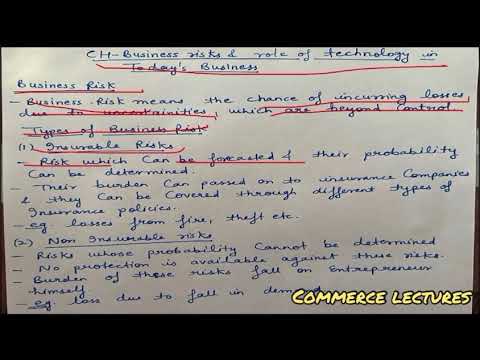 CH-Business risks & role of technology in
Today's Business
Business Risk
- Business Risk means the chance of incurring losses
due to uncertainities, which are beyond control.
Types of Business Risk
(1) Insurable Risks
- Risk which can be forcasted & their probability
can be determined.
- Their burden can passed on to insurance companies
& they can be covered through different types of
Insurance policies.
- eg. losses from fire, theft etc.
(2) Non Insurable risks
- Risks whose probability cannot be determined
- No protection is available against these risks.
- Burden of these risks fall on Entrepreneur
himself
- eg. loss due to fall in demand
COMMERCE LECTURES